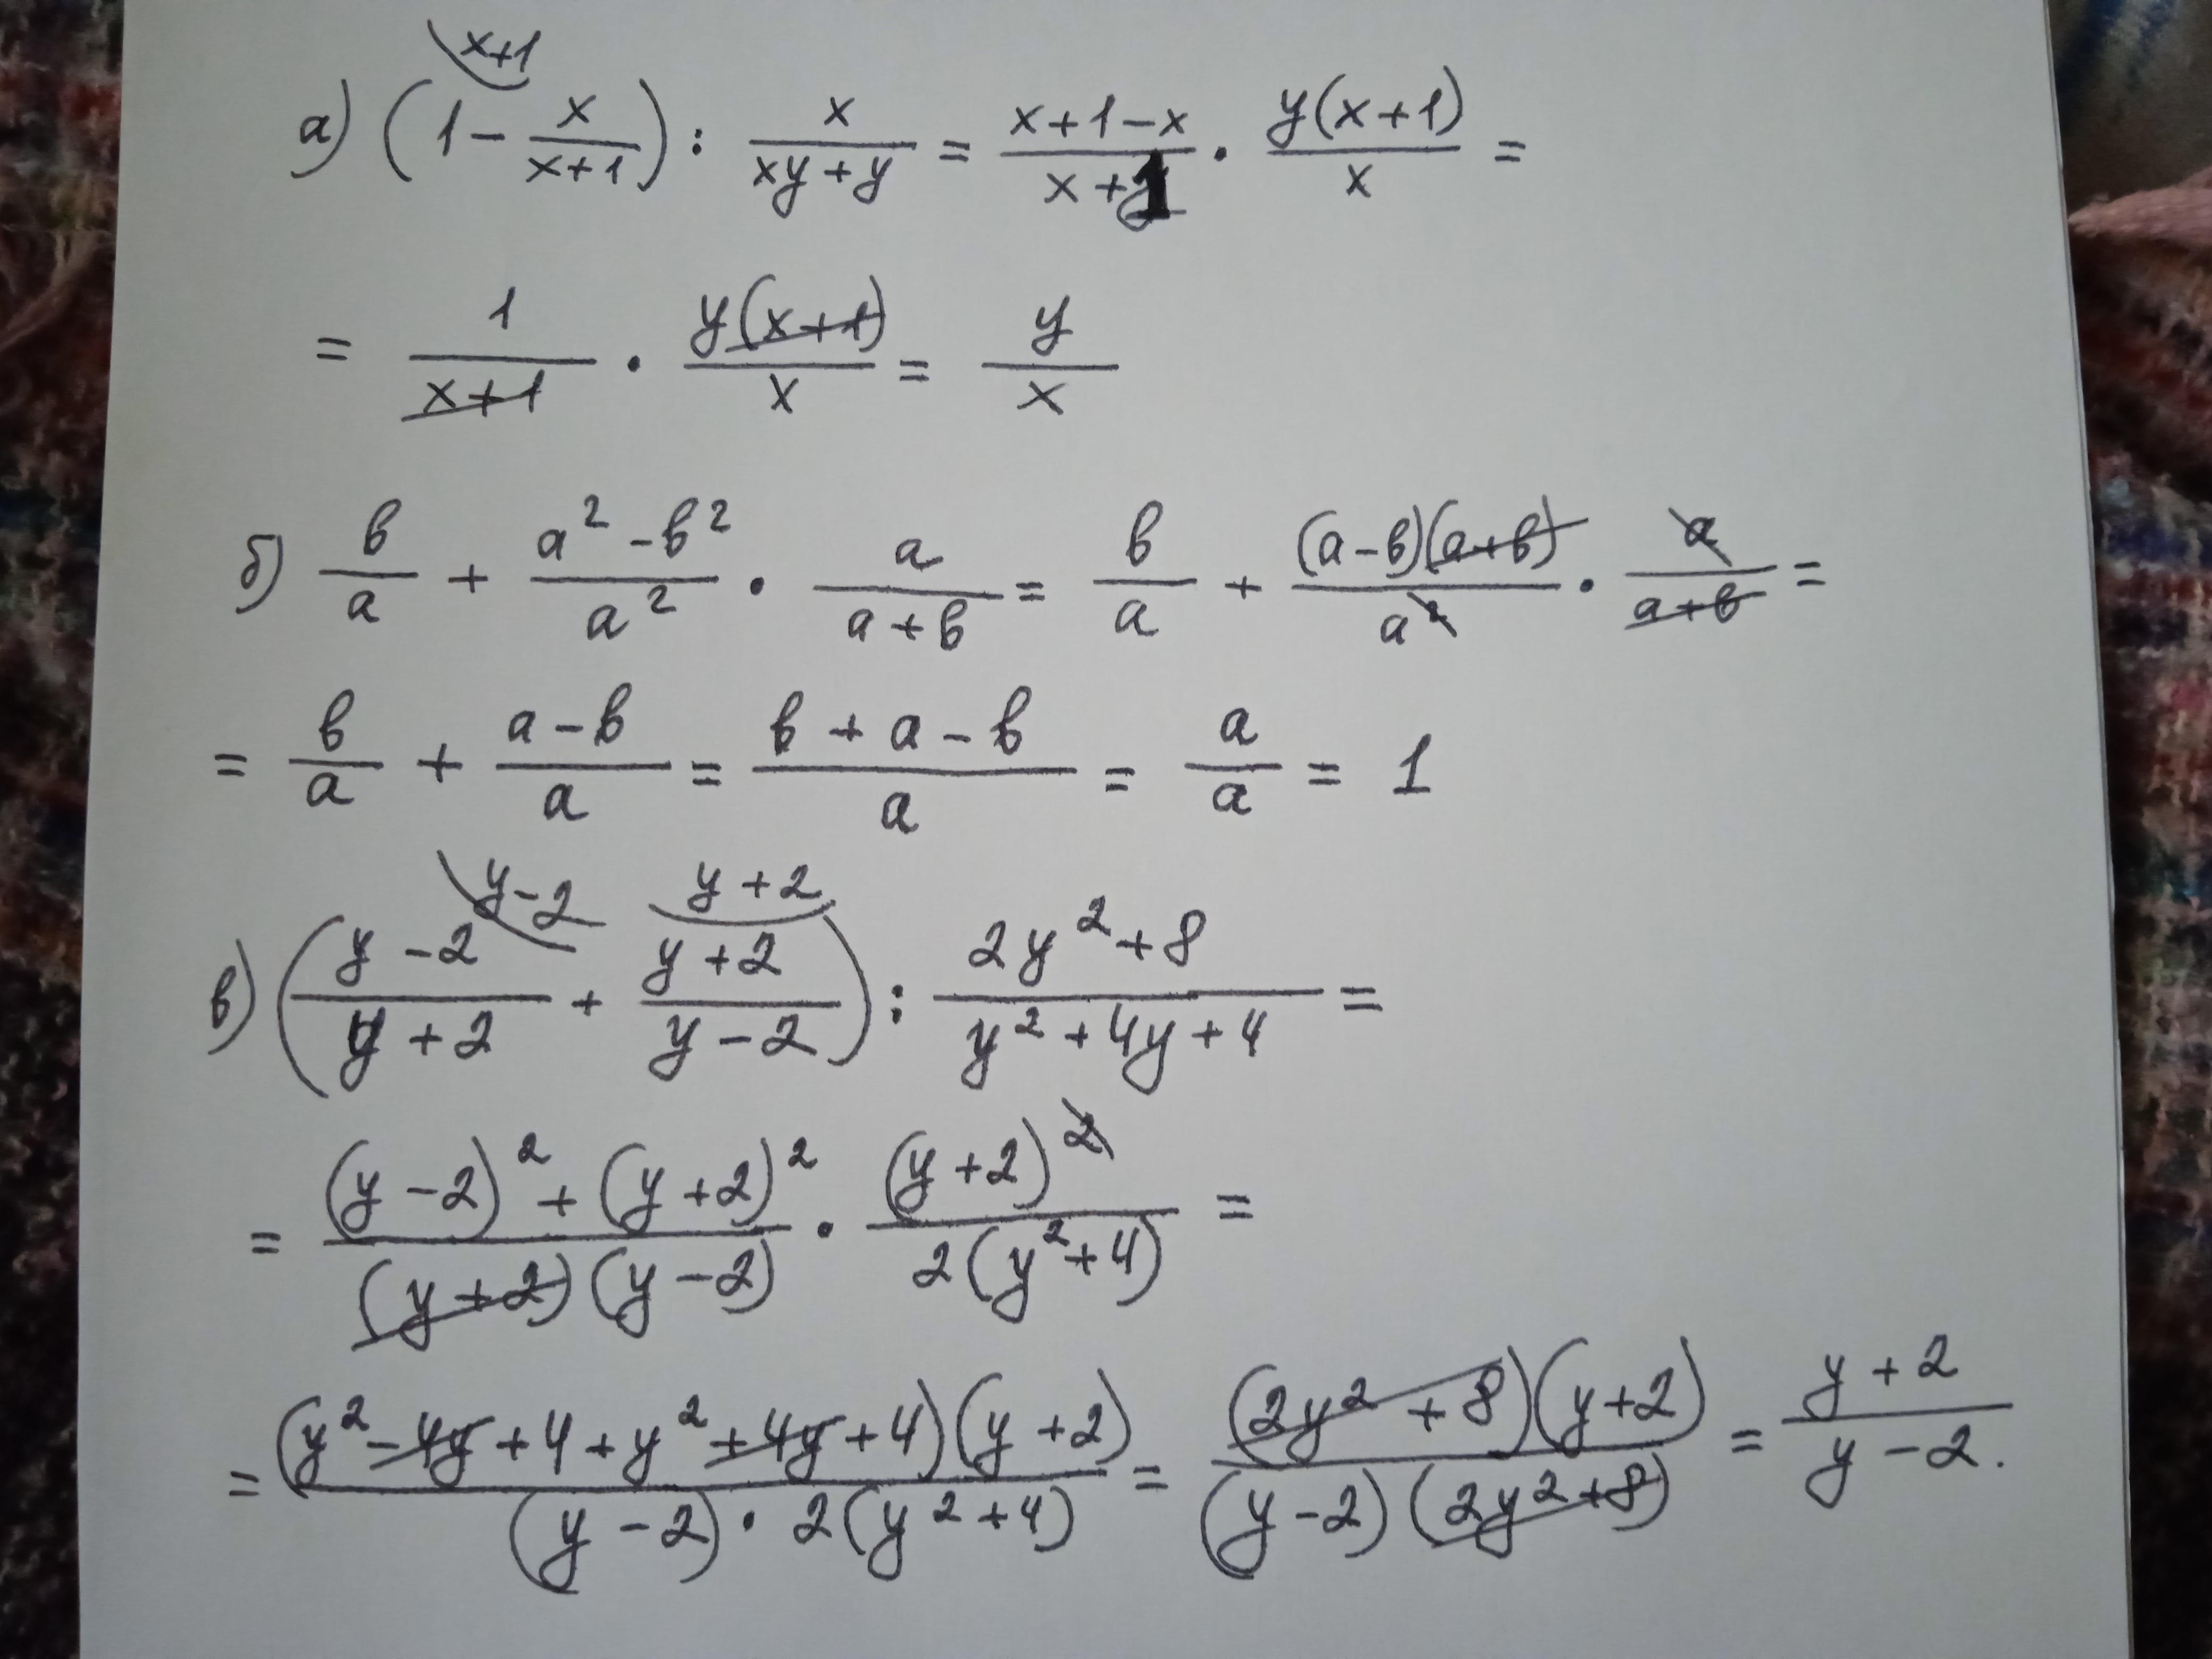 x+1
а) (1 - x/(x+1)) : x/(xy+y) = (x+1-x)/(x+1) · y(x+1)/x =
= 1/(x+1) · y(x+1)/x = y/x
б) в/а + (а² - в²)/а² · а/(а+в) = в/а + (а-в)(а+в)/а² · а/(а+в) =
= в/а + (а-в)/а = (в+а-в)/а = а/а = 1
y-2 y+2
в) ((y-2)/(y+2) + (y+2)/(y-2)) : (2y²+8)/(y²+4y+4) =
= ((y-2)² + (y+2)²)/((y+2)(y-2)) · (y+2)²/(2(y²+4)) =
= (y²-4y+4+y²+4y+4)(y+2)/((y-2)·2(y²+4)) = (2y²+8)(y+2)/((y-2)(2y²+8)) = (y+2)/(y-2).